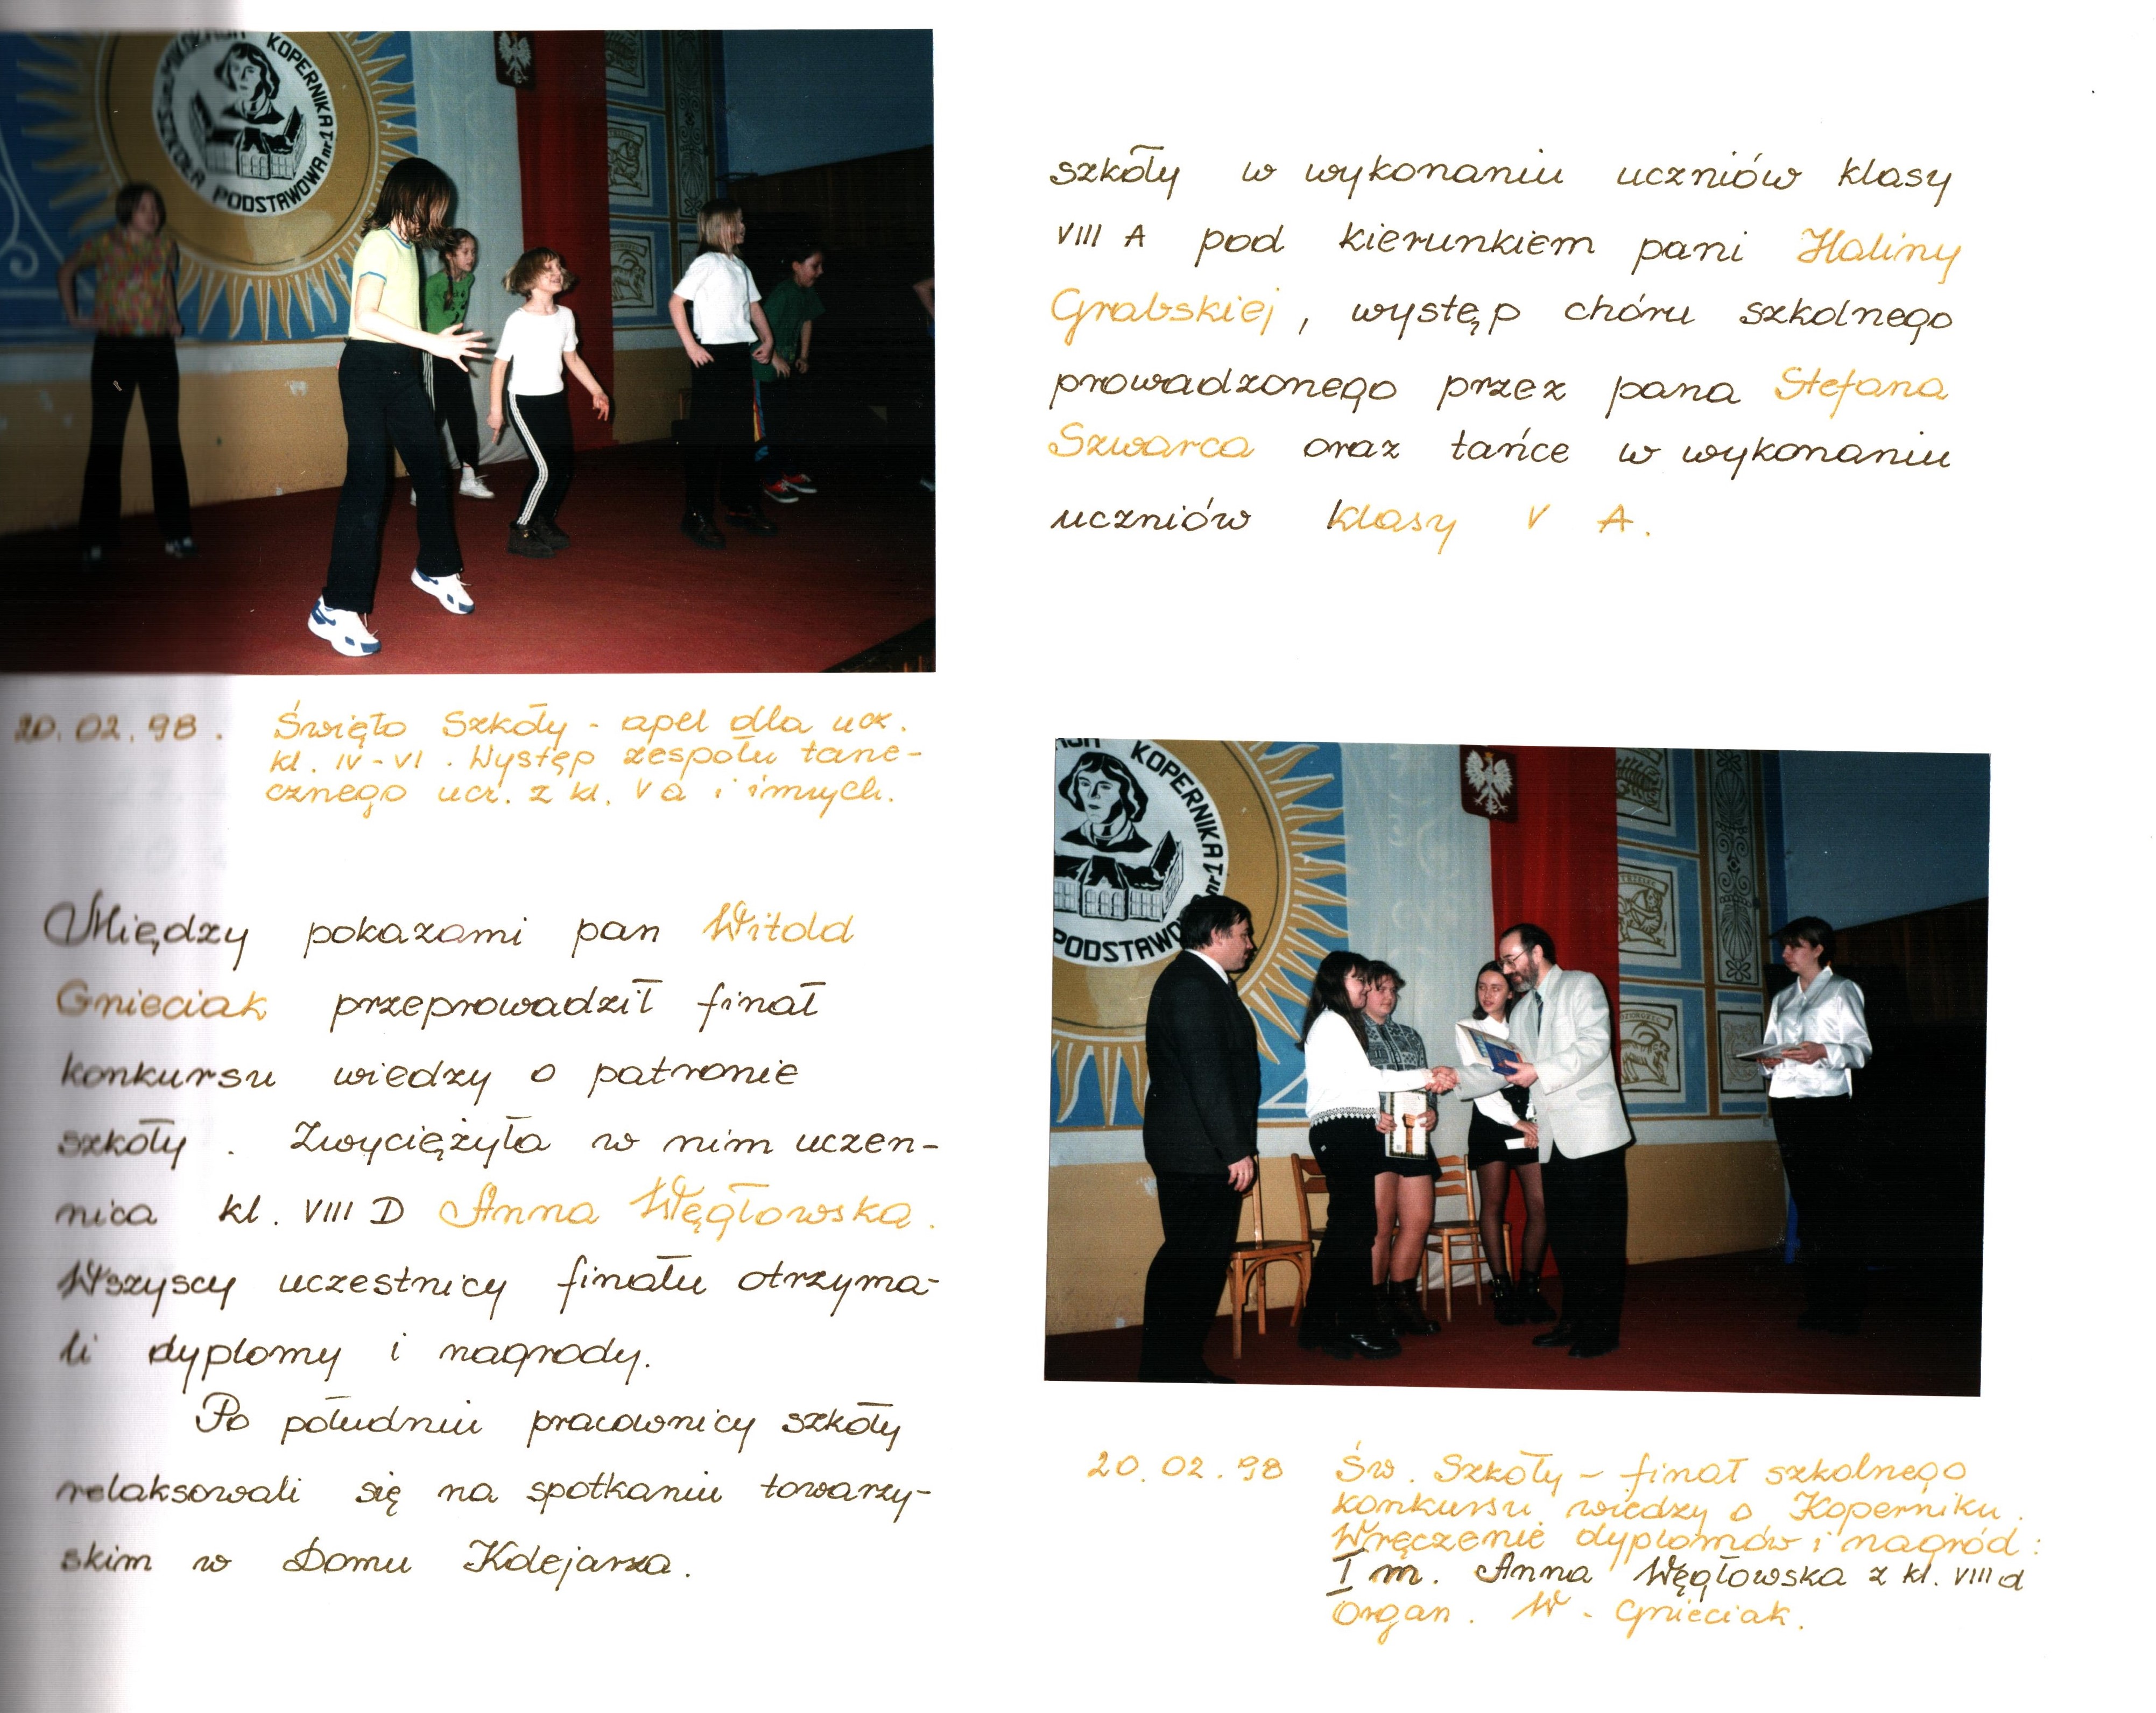 KOPERNIKA
SZKOŁA PODSTAWOWA nr 1
20.02.98. Święto Szkoły - apel dla ucz.
kl. IV-VI. Występ zespołu tane-
cznego ucz. z kl. V a i innych.
Między pokazami pan Witold
Gnieciak przeprowadził finał
konkursu wiedzy o patronie
szkoły. Zwyciężyła w nim uczen-
nica kl. VIII D Anna Węgłowska.
Wszyscy uczestnicy finału otrzyma-
li dyplomy i nagrody.
Po południu pracownicy szkoły
relaksowali się na spotkaniu towarzy-
skim w Domu Kolejarza.
szkoły w wykonaniu uczniów klasy
VIII A pod kierunkiem pani Haliny
Grabskiej, występ chóru szkolnego
prowadzonego przez pana Stefana
Szwarca oraz tańce w wykonaniu
uczniów klasy V A.
KOPERNIKA
nr 1
PODSTAWO
20.02.98 Św. Szkoły - finał szkolnego
konkursu wiedzy o Koperniku.
Wręczenie dyplomów i nagród:
I m. Anna Węgłowska z kl. VIII d
Organ. W. Gnieciak.